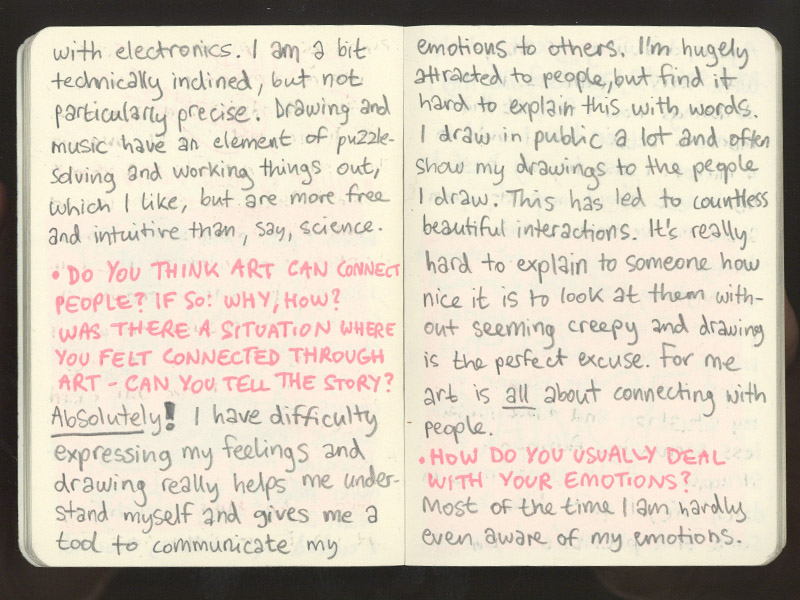 with electronics. I am a bit
technically inclined, but not
particularly precise. Drawing and
music have an element of puzzle-
solving and working things out,
which I like, but are more free
and intuitive than, say, science.
• DO YOU THINK ART CAN CONNECT
PEOPLE? IF SO: WHY, HOW?
WAS THERE A SITUATION WHERE
YOU FELT CONNECTED THROUGH
ART - CAN YOU TELL THE STORY?
Absolutely! I have difficulty
expressing my feelings and
drawing really helps me under-
stand myself and gives me a
tool to communicate my
emotions to others. I'm hugely
attracted to people, but find it
hard to explain this with words.
I draw in public a lot and often
show my drawings to the people
I draw. This has led to countless
beautiful interactions. It's really
hard to explain to someone how
nice it is to look at them with-
out seeming creepy and drawing
is the perfect excuse. For me
art is all about connecting with
people.
• HOW DO YOU USUALLY DEAL
WITH YOUR EMOTIONS?
Most of the time I am hardly
even aware of my emotions.